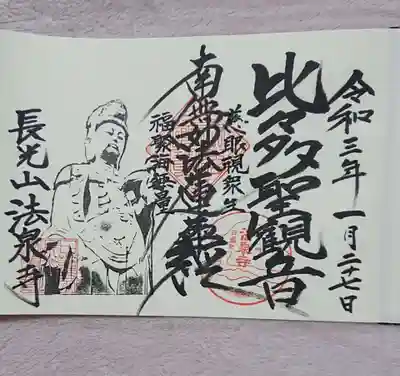 令和三年一月二十七日
比多聖観音
慈眼視衆生
南無妙法蓮華経
福聚海無量
長光山法泉寺